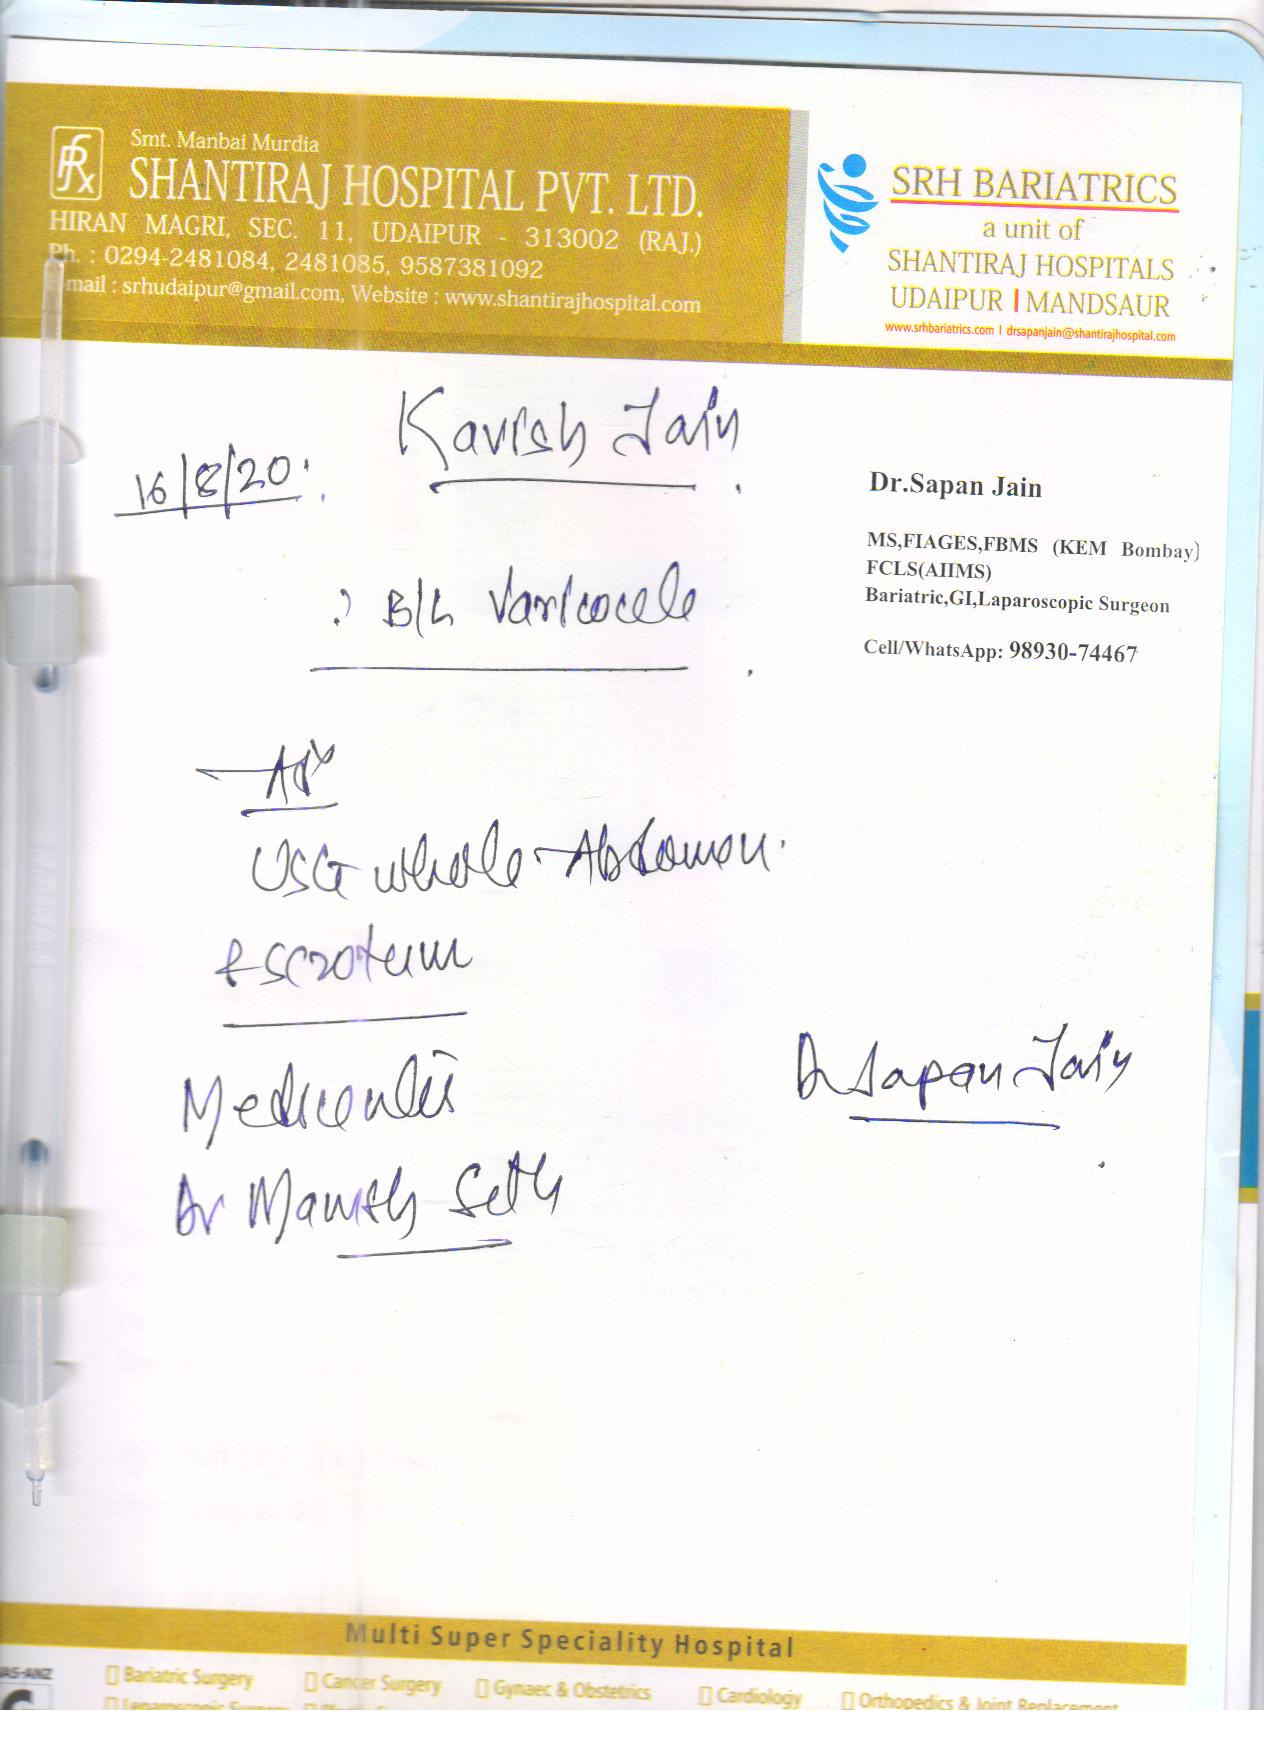 Smt. Manbai Murdia
SHANTIRAJ HOSPITAL PVT. LTD.
HIRAN MAGRI, SEC. 11, UDAIPUR - 313002 (RAJ.)
Ph. : 0294-2481084, 2481085, 9587381092
E-mail : srhudaipur@gmail.com, Website : www.shantirajhospital.com
SRH BARIATRICS
a unit of
SHANTIRAJ HOSPITALS
UDAIPUR | MANDSAUR
www.srhbariatrics.com | drsapanjain@shantirajhospital.com
Kavish Jain
16/8/20
Dr.Sapan Jain
MS,FIAGES,FBMS (KEM Bombay)
FCLS(AIIMS)
Bariatric,GI,Laparoscopic Surgeon
Cell/WhatsApp: 98930-74467
: B/L Varicocele
Adv
USG whole Abdomen
& scrotum
Dr Sapan Jain
Dr Manish Seth
Multi Super Speciality Hospital
JAS-ANZ
Bariatric Surgery
Cancer Surgery
Gynaec & Obstetrics
Cardiology
Orthopedics & Joint Replacement